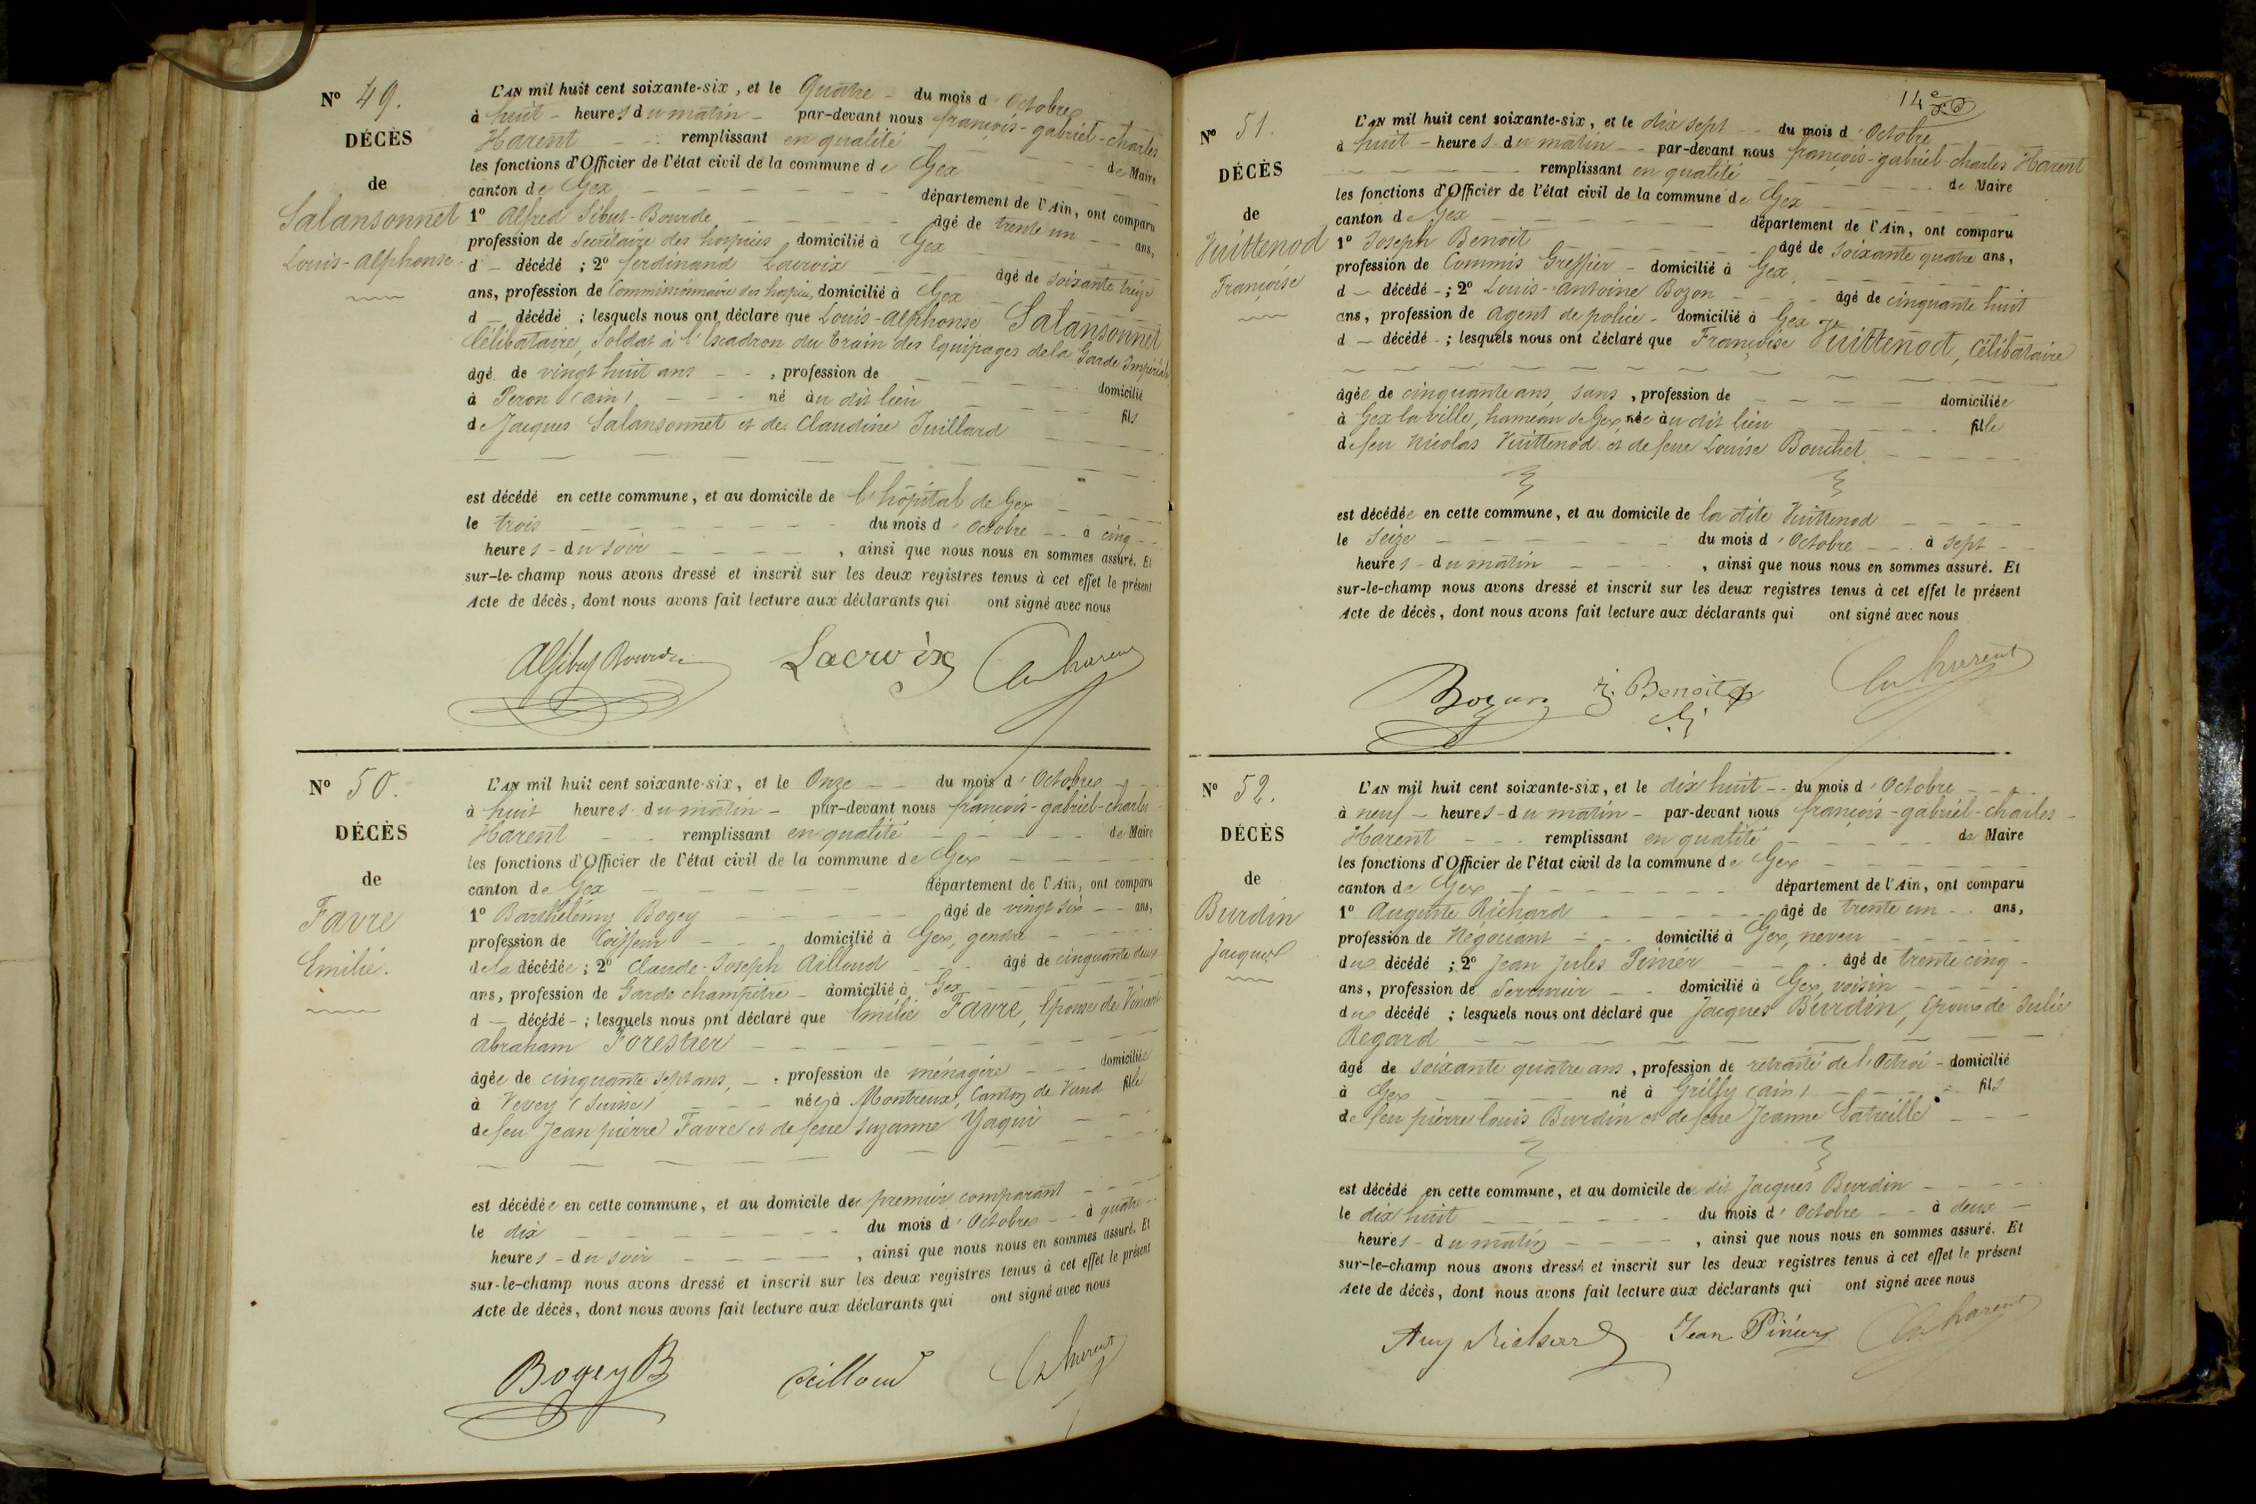 Nº 49.
DÉCÈS
de
Salansonnet
Louis-Alphonse
L'AN mil huit cent soixante-six, et le Quatre du mois d'Octobre
à huit heures du matin par-devant nous françois-gabriel-charles
Harent remplissant en qualité de Maire
les fonctions d'Officier de l'état civil de la commune de Gex
canton de Gex département de l'Ain, ont comparu
1º Alfred Sibut-Bourde âgé de trente un ans,
profession de Secrétaire des hospices domicilié à Gex
d décédé ; 2º ferdinand Lacroix âgé de soixante treize
ans, profession de Commissionnaire des hospices, domicilié à Gex
d décédé ; lesquels nous ont déclaré que Louis-Alphonse Salansonnet
Célibataire, Soldat à l'Escadron du train des Equipages de la Garde Impériale
âgé de vingt huit ans, profession de domicilié
à Peron (ain) né au dit lieu fils
de Jacques Salansonnet et de Claudine Juillard
est décédé en cette commune, et au domicile de l'hôpital de Gex
le trois du mois d'Octobre à cinq
heures du soir, ainsi que nous nous en sommes assuré. Et
sur-le-champ nous avons dressé et inscrit sur les deux registres tenus à cet effet le présent
Acte de décès, dont nous avons fait lecture aux déclarants qui ont signé avec nous
Lacroix Harent
Nº 50.
DÉCÈS
de
Favre
Emilie.
L'AN mil huit cent soixante-six, et le Onze du mois d'Octobre
à huit heures du matin par-devant nous françois-gabriel-charles
Harent remplissant en qualité de Maire
les fonctions d'Officier de l'état civil de la commune de Gex
canton de Gex département de l'Ain, ont comparu
1º Barthélémy Bogey âgé de vingt six ans,
profession de Coiffeur domicilié à Gex, gendre
de la décédée ; 2º Claude-Joseph Ailloud âgé de cinquante deux
ans, profession de Garde champêtre domicilié à Gex
d décédé ; lesquels nous ont déclaré que Emilie Favre, Epouse de Vincent
abraham Forestier
âgée de cinquante sept ans, profession de ménagère domiciliée
à Vevey (Suisse) née à Montreux, Canton de Vaud fille
de feu Jean pierre Favre et de feue Suzanne Yaquis
est décédée en cette commune, et au domicile du premier comparant
le dix du mois d'Octobre à quatre
heures du soir, ainsi que nous nous en sommes assuré. Et
sur-le-champ nous avons dressé et inscrit sur les deux registres tenus à cet effet le présent
Acte de décès, dont nous avons fait lecture aux déclarants qui ont signé avec nous
Bogey B Ailloud Harent
Nº 51.
DÉCÈS
de
Vuittenod
Françoise
L'AN mil huit cent soixante-six, et le dix sept du mois d'Octobre
à huit heures du matin par-devant nous françois-gabriel-charles Harent
remplissant en qualité de Maire
les fonctions d'Officier de l'état civil de la commune de Gex
canton de Gex département de l'Ain, ont comparu
1º Joseph Benoit âgé de soixante quatre ans,
profession de Commis Greffier domicilié à Gex
d décédé ; 2º Louis-Antoine Bozon âgé de cinquante huit
ans, profession de agent de police domicilié à Gex
d décédé ; lesquels nous ont déclaré que Françoise Vuittenod, Célibataire
âgée de cinquante ans, sans, profession de domiciliée
à Gex la ville, hameau de Gex née au dit lieu fille
de feu Nicolas Vuittenod et de feue Louise Bouchet
est décédée en cette commune, et au domicile de la dite Vuittenod
le Seize du mois d'Octobre à sept
heures du matin, ainsi que nous nous en sommes assuré. Et
sur-le-champ nous avons dressé et inscrit sur les deux registres tenus à cet effet le présent
Acte de décès, dont nous avons fait lecture aux déclarants qui ont signé avec nous
Bozon J. Benoit Harent
Nº 52.
DÉCÈS
de
Burdin
Jacques
L'AN mil huit cent soixante-six, et le dix huit du mois d'Octobre
à neuf heures du matin par-devant nous françois-gabriel-charles
Harent remplissant en qualité de Maire
les fonctions d'Officier de l'état civil de la commune de Gex
canton de Gex département de l'Ain, ont comparu
1º Auguste Richard âgé de trente un ans,
profession de Négociant domicilié à Gex, neveu
du décédé ; 2º Jean Jules Pinier âgé de trente cinq
ans, profession de Serrurier domicilié à Gex, voisin
du décédé ; lesquels nous ont déclaré que Jacques Burdin, Epoux de Julie
Regard
âgé de soixante quatre ans, profession de retraité de l'Octroi domicilié
à Gex né à Grilly (ain) fils
de feu pierre louis Burdin et de feue Jeanne
est décédé en cette commune, et au domicile du dit Jacques Burdin
le dix huit du mois d'Octobre à deux
heures du matin, ainsi que nous nous en sommes assuré. Et
sur-le-champ nous avons dressé et inscrit sur les deux registres tenus à cet effet le présent
Acte de décès, dont nous avons fait lecture aux déclarants qui ont signé avec nous
Aug Richard Jean Pinier Harent